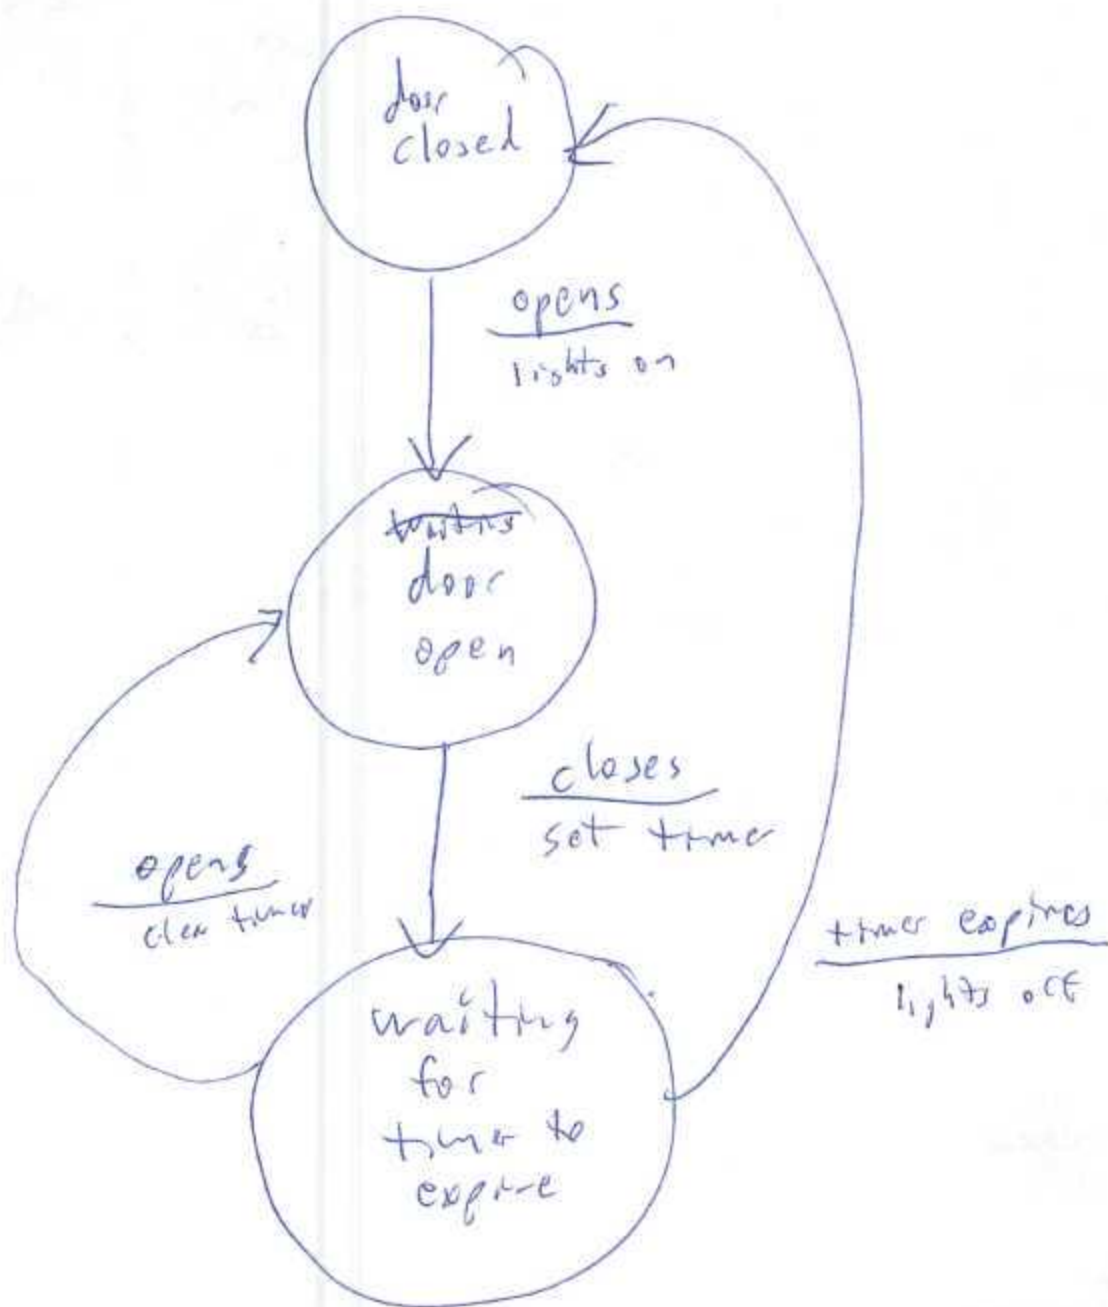 door
closed
opens
lights on
waiting
door
open
closes
set timer
opens
clear timer
timer expires
lights off
waiting
for
timer to
expire